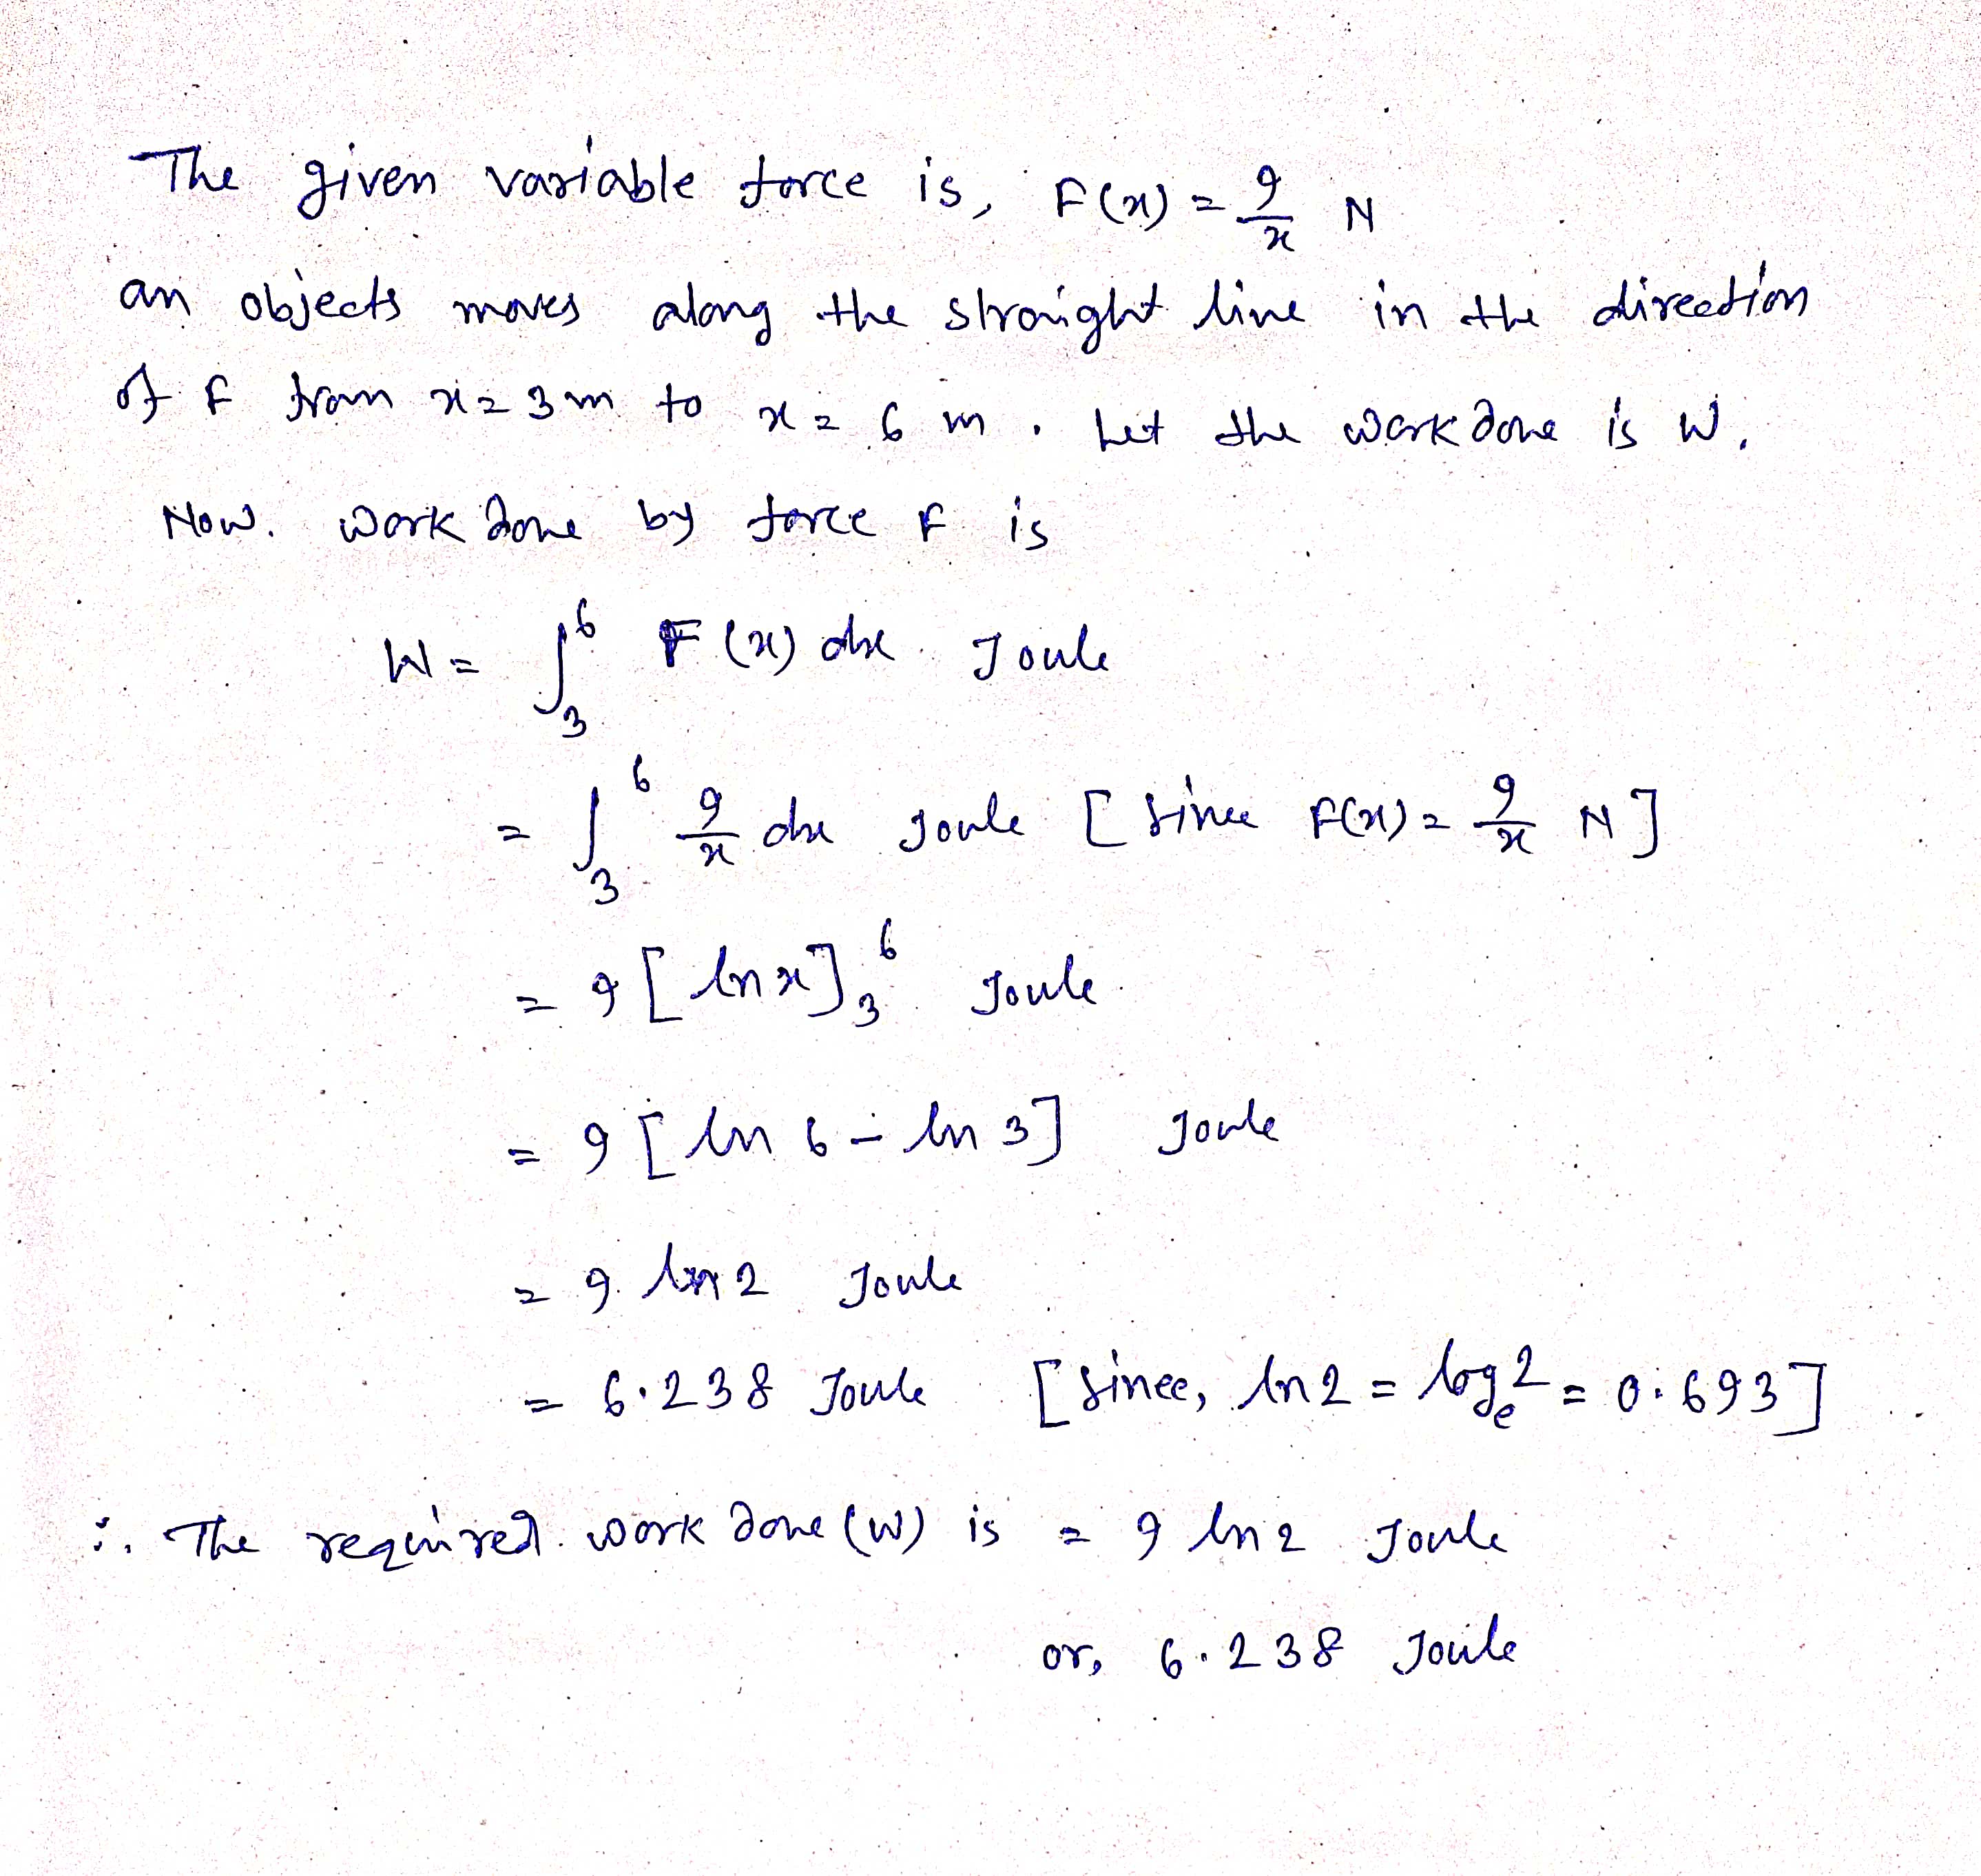 The given variable force is, F(x) = 9/x N
an objects moves along the straight line in the direction
of F from x = 3 m to x = 6 m. Let the work done is W.
Now. work done by force F is
W = ∫₃⁶ F(x) dx Joule
= ∫₃⁶ 9/x dx Joule [since F(x) = 9/x N]
= 9 [ln x]₃⁶ Joule
= 9 [ln 6 - ln 3] Joule
= 9. ln 2 Joule
= 6.238 Joule [since, ln 2 = logₑ2 = 0.693]
∴ The required work done (W) is = 9 ln 2 Joule
or, 6.238 Joule